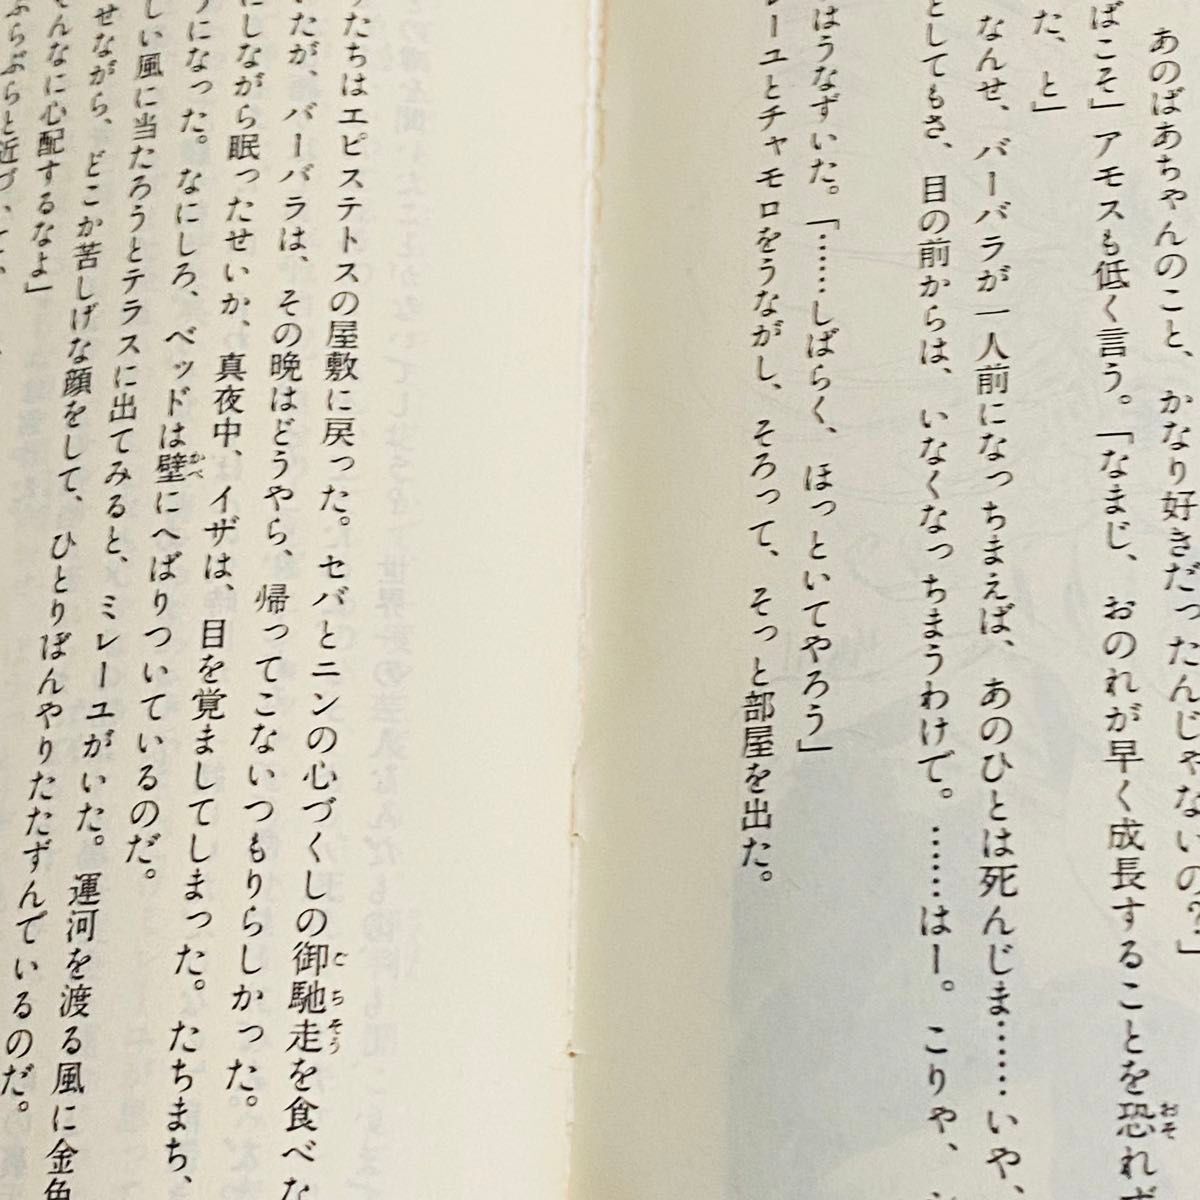 あのばあちゃんのこと、かなり好きだったんじゃないの？」
ばこそ」アモスも低く言う。「なまじ、おのれが早く成長することを恐れず
た、と」
なんせ、バーバラが一人前になっちまえば、あのひとは死んじま……いや、
としてもさ、目の前からは、いなくなっちまうわけで。……はー。こりゃ、シ
はうなずいた。「……しばらく、ほっといてやろう」
レーユとチャモロをうながし、そろって、そっと部屋を出た。
たちはエピステトスの屋敷に戻った。セバとニンの心づくしの御馳走を食べな
いたが、バーバラは、その晩はどうやら、帰ってこないつもりらしかった。
にしながら眠ったせいか、真夜中、イザは、目を覚ましてしまった。たちまち、
うになった。なにしろ、ベッドは壁にへばりついているのだ。
しい風に当たろうとテラスに出てみると、ミレーユがいた。運河を渡る風に金色
せながら、どこか苦しげな顔をして、ひとりぼんやりたたずんでいるのだ。
そんなに心配するなよ」
ぶらぶらと近づいて、